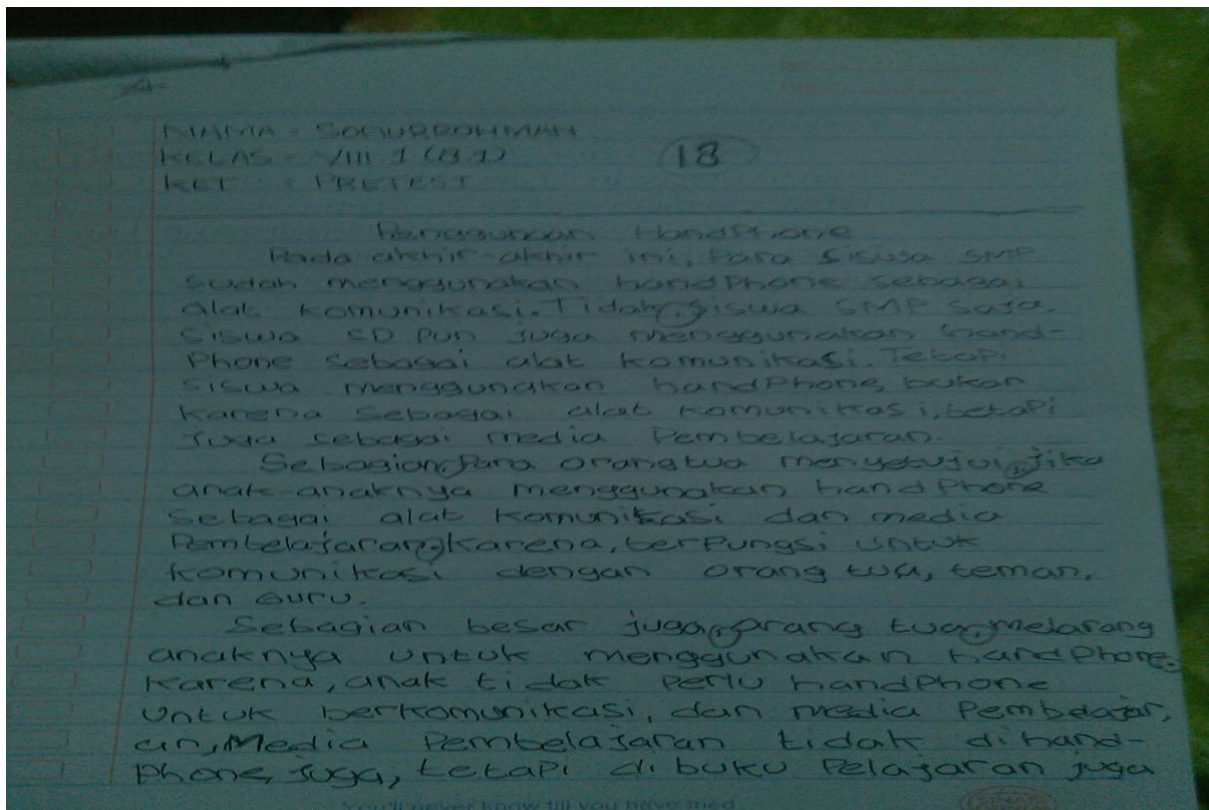 NAMA : SOFIURROHMAN
KELAS : VIII 1 (8.1)
KET : PRETEST
18
Penggunaan HandPhone
Pada akhir-akhir ini, Para Siswa SMP
sudah menggunakan handPhone sebagai
alat komunikasi. Tidak, Siswa SMP Saja.
Siswa SD Pun juga menggunakan hand-
Phone sebagai alat komunikasi. Tetapi
Siswa menggunakan handPhone, bukan
Karena Sebagai alat Komunikasi, tetapi
Juga sebagai media Pembelajaran.
Sebagian, Para orangtua menyetujui, jika
anak-anaknya menggunakan handPhone
Sebagai alat Komunikasi dan media
Pembelajaran. Karena, berPungsi Untuk
Komunikasi dengan orang tua, teman,
dan Guru.
Sebagian besar juga, orang tua, melarang
anaknya untuk menggunakan handPhone.
Karena, anak tidak Perlu handPhone
Untuk berkomunikasi, dan media Pembelajar,
an, Media Pembelajaran tidak dihand-
Phone, Juga, tetaPi di buku Pelajaran juga
You'll never know till you have tried